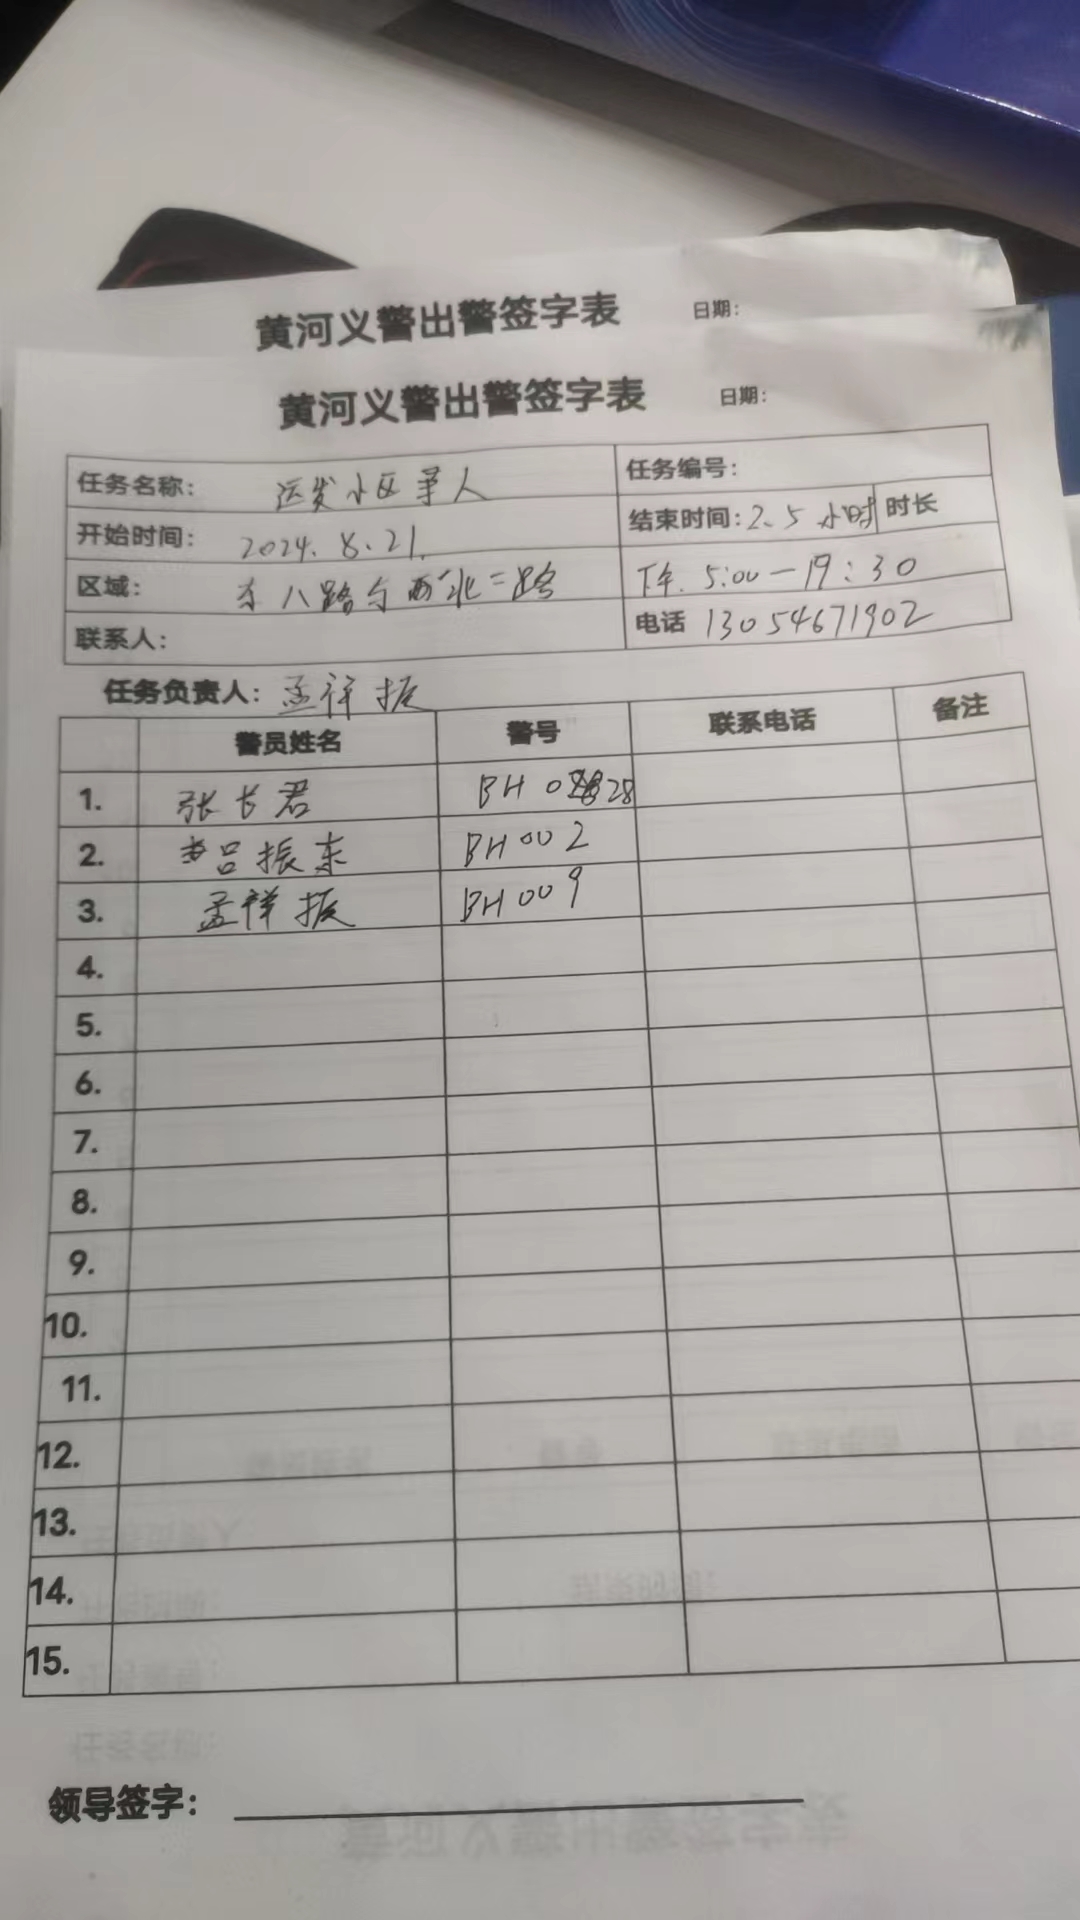 黄河义警出警签字表 日期：
黄河义警出警签字表 日期：
任务名称： 运发小区寻人 任务编号：
开始时间： 2024.8.21. 结束时间：2.5小时 时长
区域： 东八路与西北二路 下午.5:00—19:30
联系人： 电话 13054671902
任务负责人：孟祥振
警员姓名 警号 联系电话 备注
1. 张长君 BH 028
2. 吕振东 BH002
3. 孟祥振 BH009
4.
5.
6.
7.
8.
9.
10.
11.
12.
13.
14.
15.
领导签字：